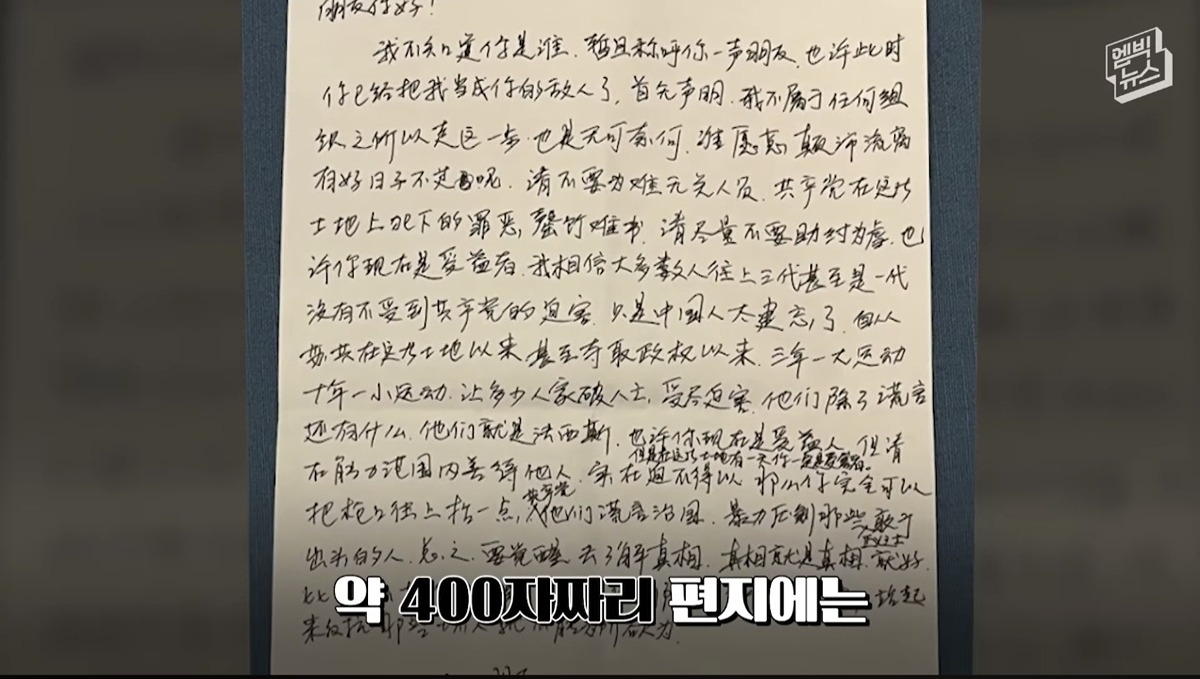 朋友你好！
엠빅
뉴스
我不知道你是谁．暂且称呼你一声朋友．也许此时
你已给把我当成你的敌人了．首先声明．我不属于任何组
织之所以走这一步．也是无可奈何．谁愿意颠沛流离
有好日子不过呢．请不要为难无关人员．共产党在这片
土地上犯下的罪恶，罄竹难书．请尽量不要助纣为虐．也
许你现在是受益者．我相信大多数人往上三代甚至是一代
没有不受到共产党的迫害．只是中国人太健忘了．自从
在这片土地以来．甚至夺取政权以来．三年一大运动
十年一小运动．让多少人家破人亡，受尽迫害．他们除了谎言
还有什么．他们就是法西斯．也许你现在是受益人．但请
但是在这片土地有一天你一定是受害者。
在能力范围内善待他人．实在迫不得以 那么你完全可以
共产党
把枪口往上抬一点，他们谎言治国．暴力压制那些敢于
正义之士
出头的人．总之．要觉醒．去了解真相．真相就是真相．就好
比
약 400자짜리 편지에는
起
来反抗 所欲为．